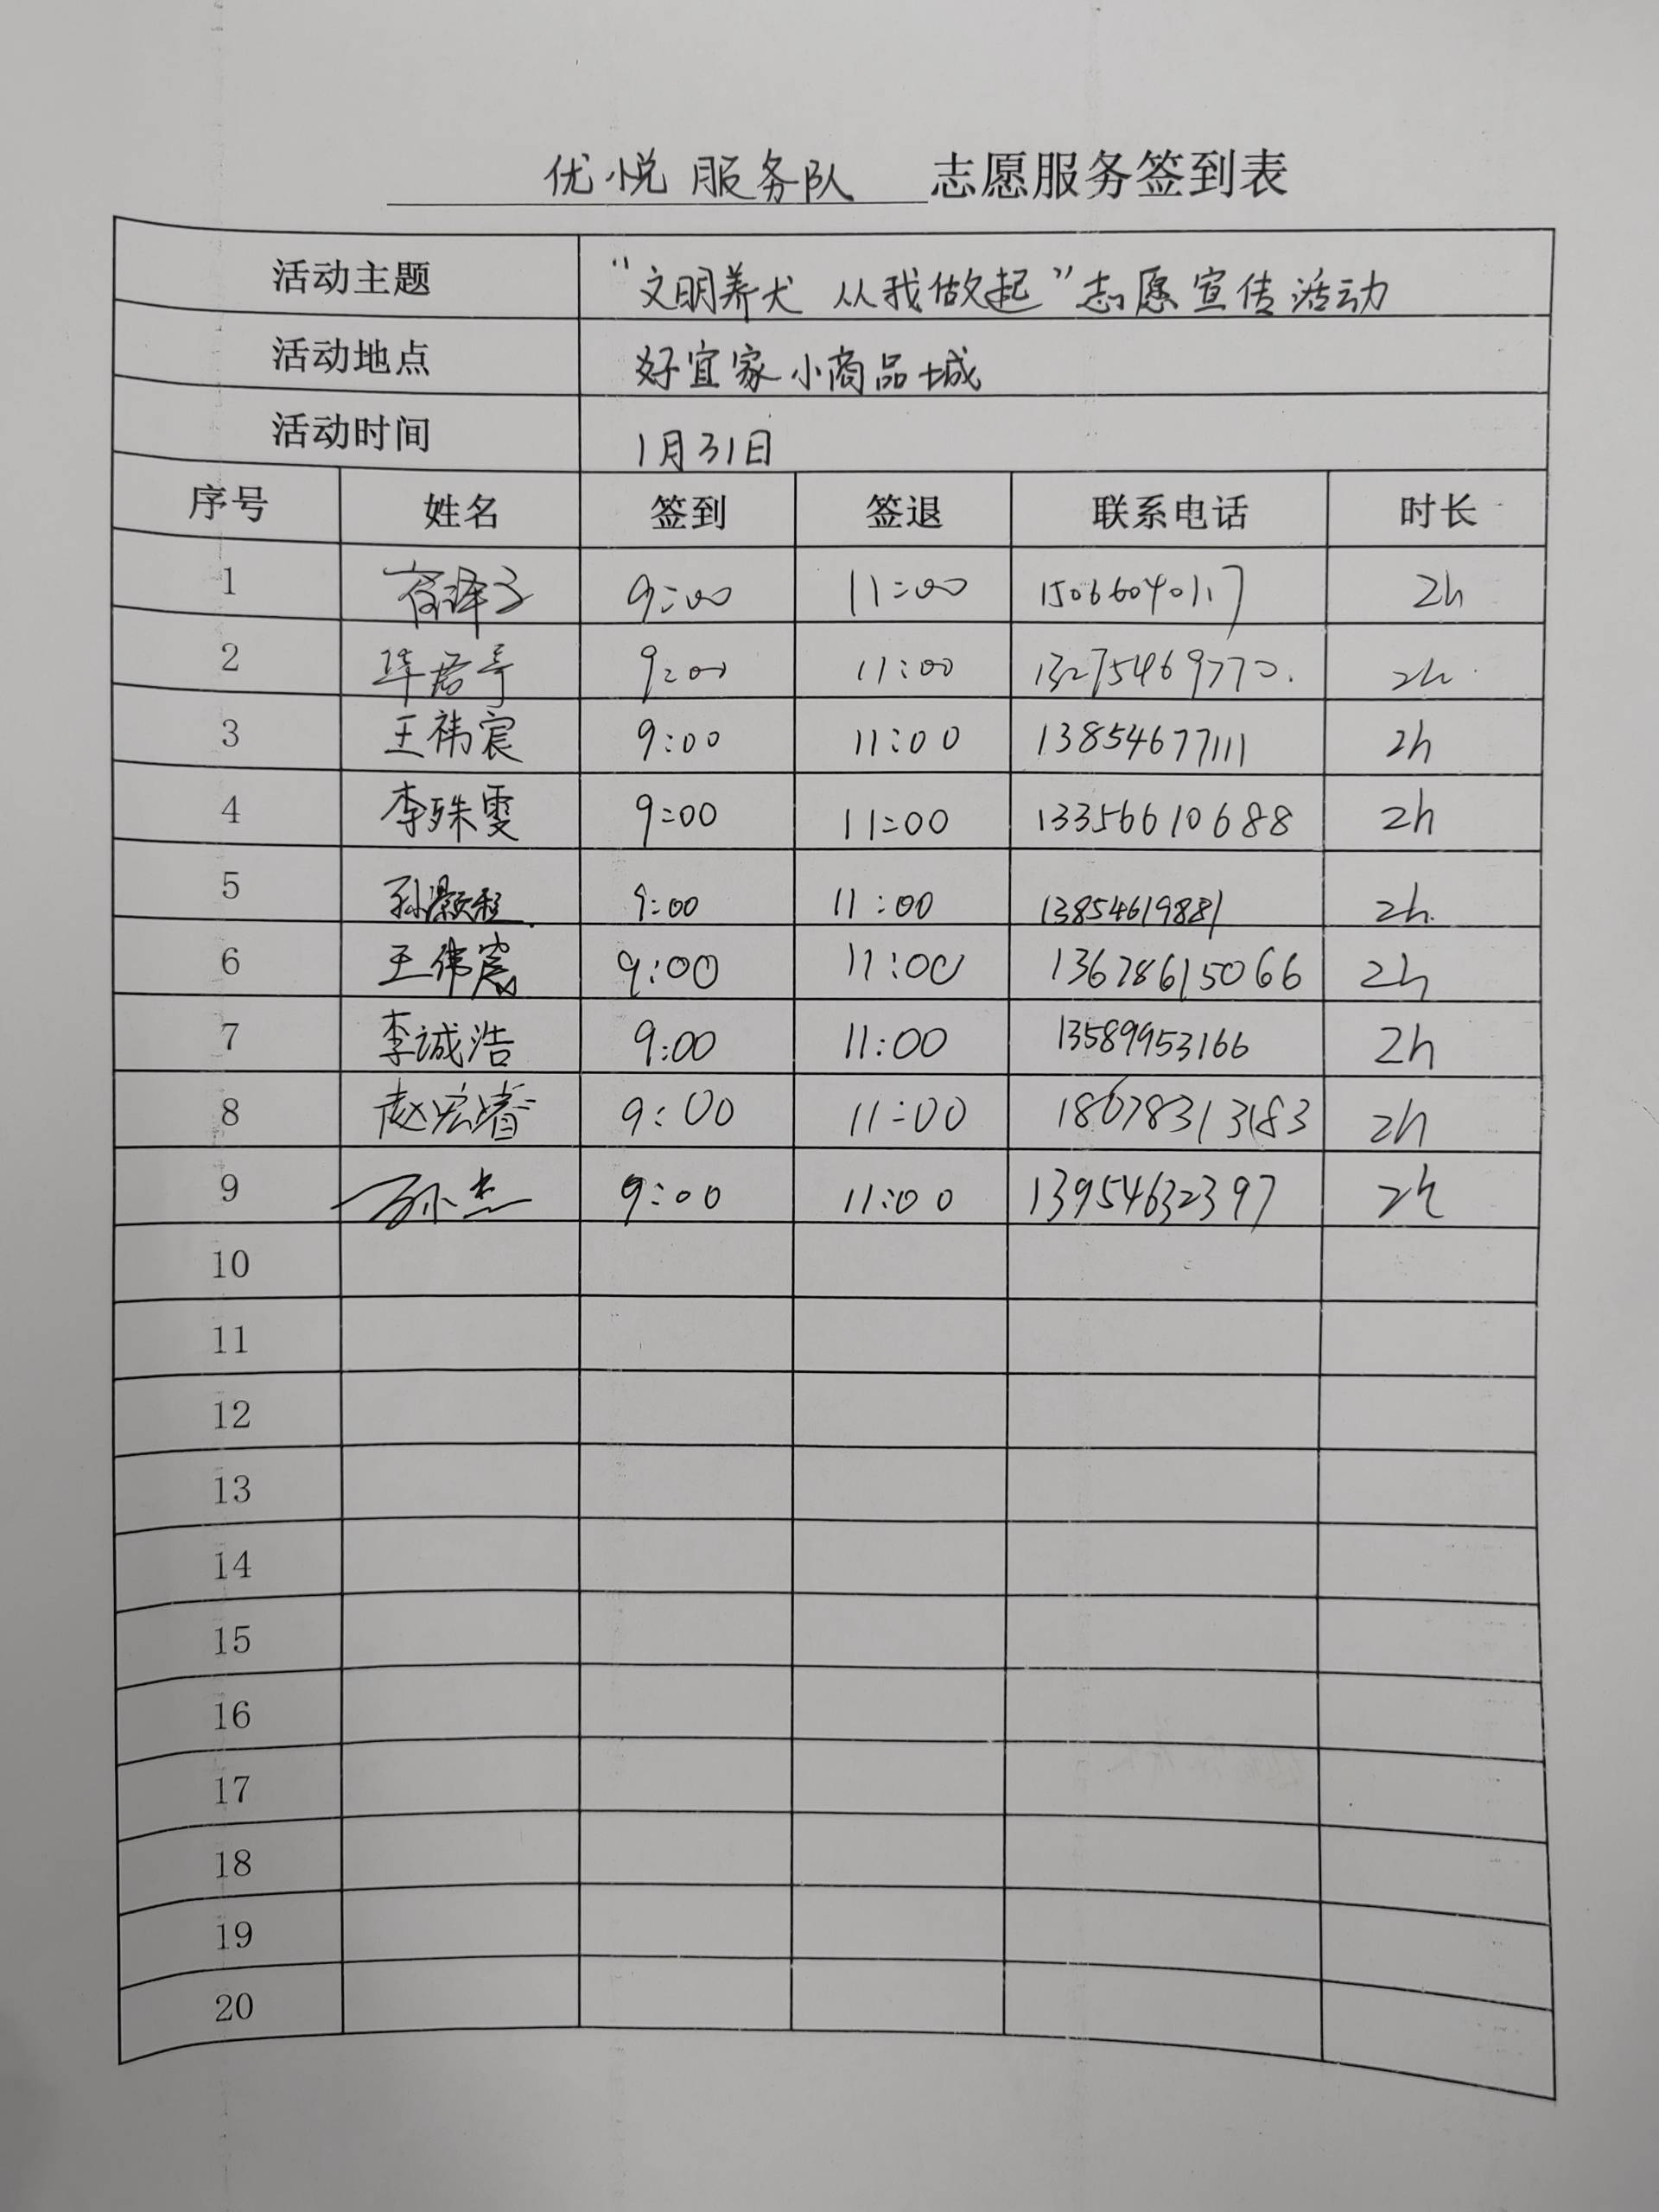 优悦服务队 志愿服务签到表
活动主题 “文明养犬 从我做起”志愿宣传活动
活动地点 好宜家小商品城
活动时间 1月31日
序号 姓名 签到 签退 联系电话 时长
1 9:00 11:00 15066040117 2h
2 9:00 11:00 2h
3 王祎宸 9:00 11:00 13854677111 2h
4 李殊雯 9:00 11:00 13356610688 2h
5 9:00 11:00 13854619881 2h
6 王伟宸 9:00 11:00 13678615066 2h
7 李诚浩 9:00 11:00 13589953166 2h
8 赵宏睿 9:00 11:00 18678313183 2h
9 孙杰 9:00 11:00 13954632397 2h
10
11
12
13
14
15
16
17
18
19
20